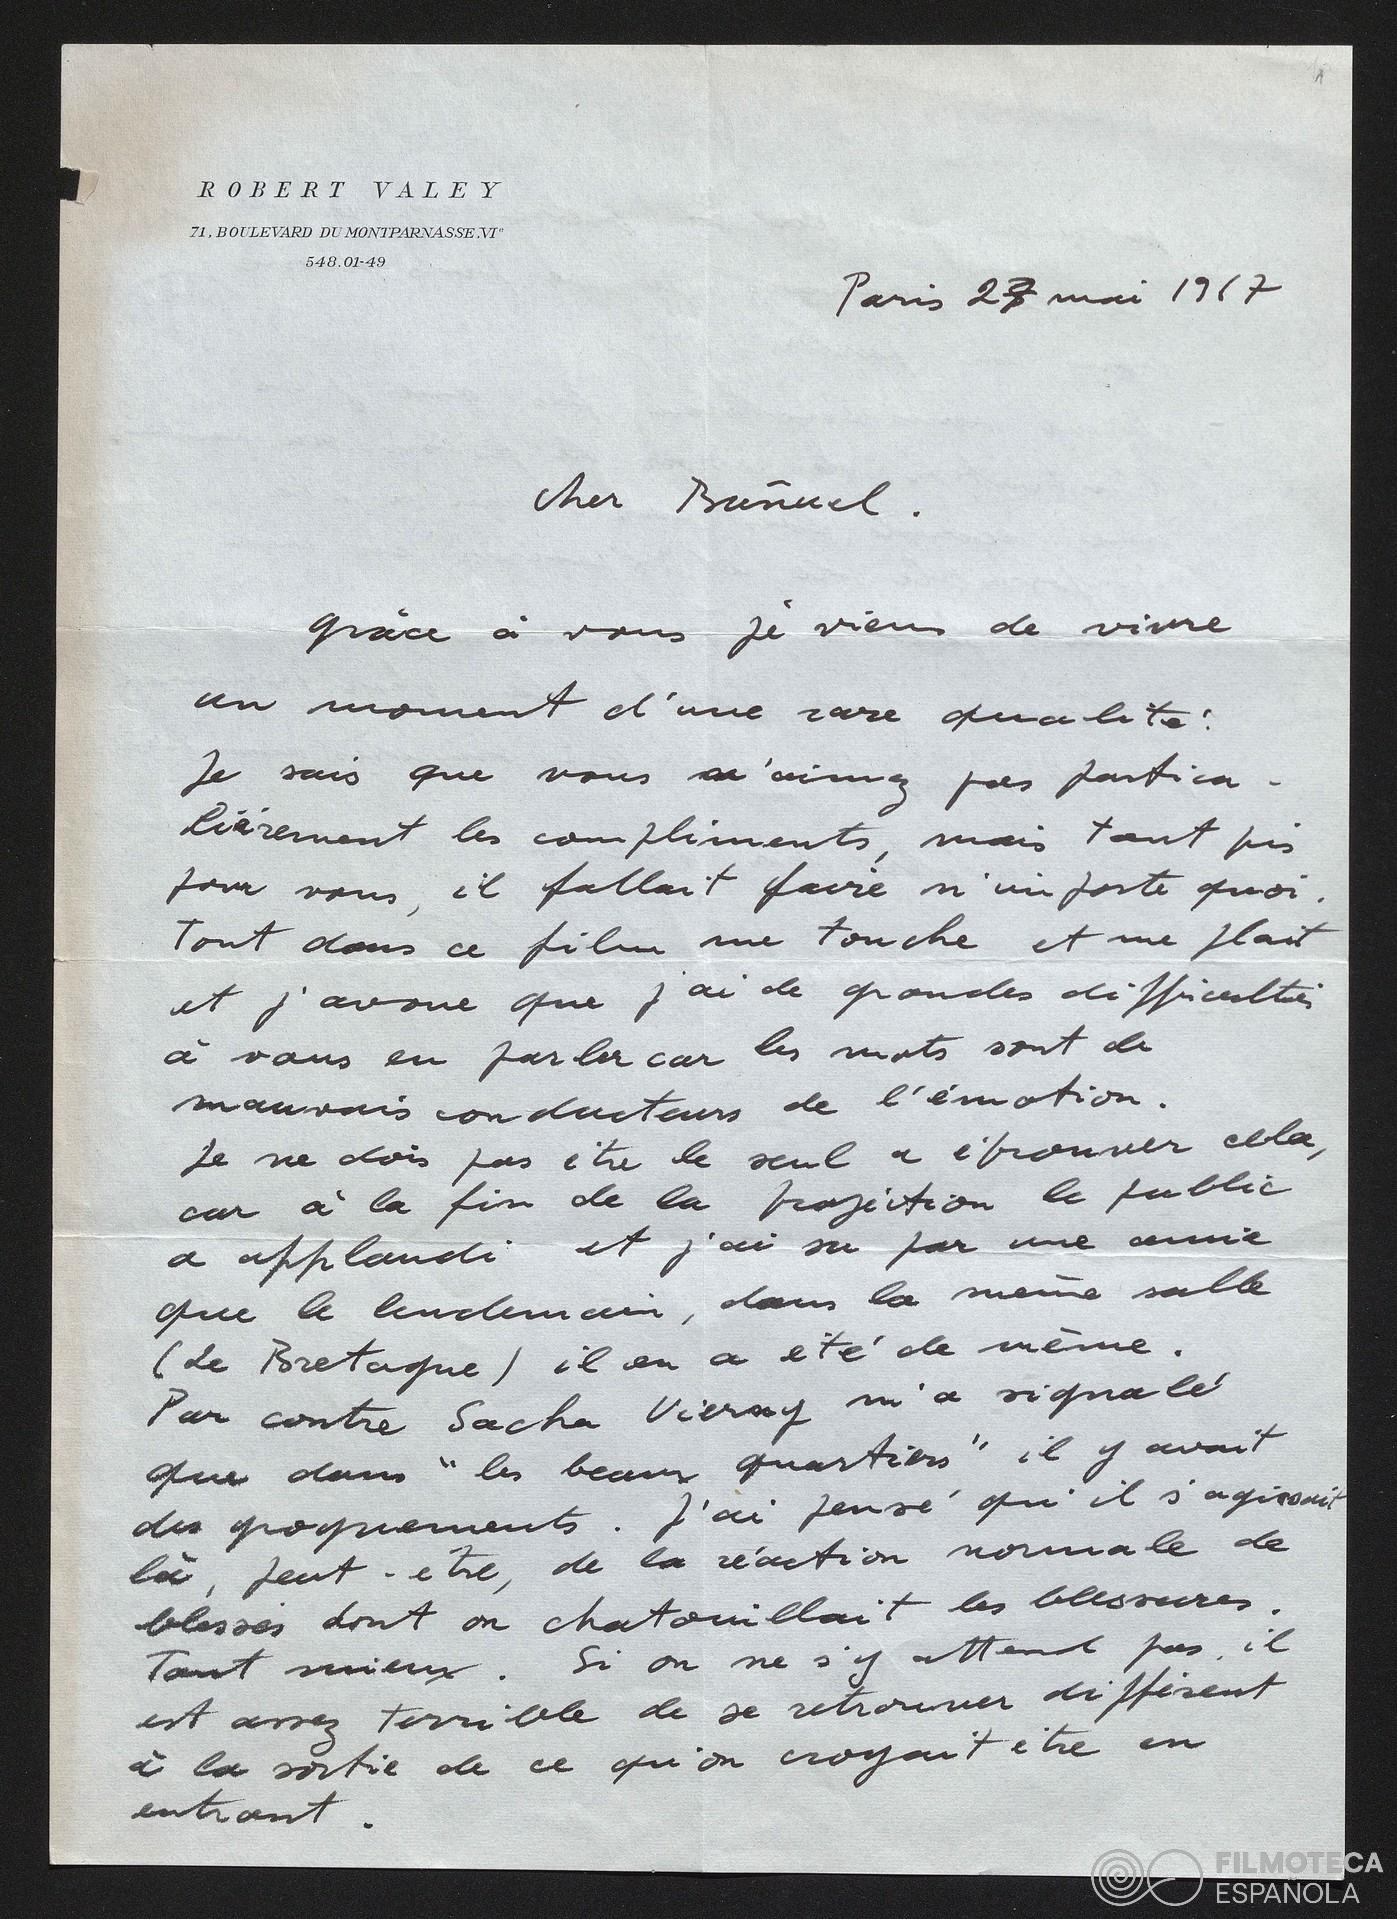 ROBERT VALEY
71, BOULEVARD DU MONTPARNASSE.VIe
548.01-49
Paris 27 mai 1967
Cher Buñuel.
Grâce à vous je viens de vivre
un moment d'une rare qualité.
Je sais que vous n'aimez pas particu-
lièrement les compliments, mais tant pis
pour vous, il fallait faire n'importe quoi.
Tout dans ce film me touche et me plait
et j'avoue que j'ai de grandes difficultés
à vous en parler car les mots sont de
mauvais conducteurs de l'émotion.
Je ne dois pas être le seul a éprouver cela,
car à la fin de la projection le public
a applaudi et j'ai su par une amie
que le lendemain, dans la même salle
(Le Bretagne) il en a été de même.
Par contre Sacha Vierny m'a signalé
que dans "les beaux quartiers" il y avait
des grognements. J'ai pensé qu'il s'agissait
là, peut-être, de la réaction normale de
blessés dont on chatouillait les blessures.
Tant mieux. Si on ne s'y attend pas, il
est assez terrible de se retrouver différent
à la sortie de ce qu'on croyait être en
entrant.
FILMOTECA
ESPAÑOLA